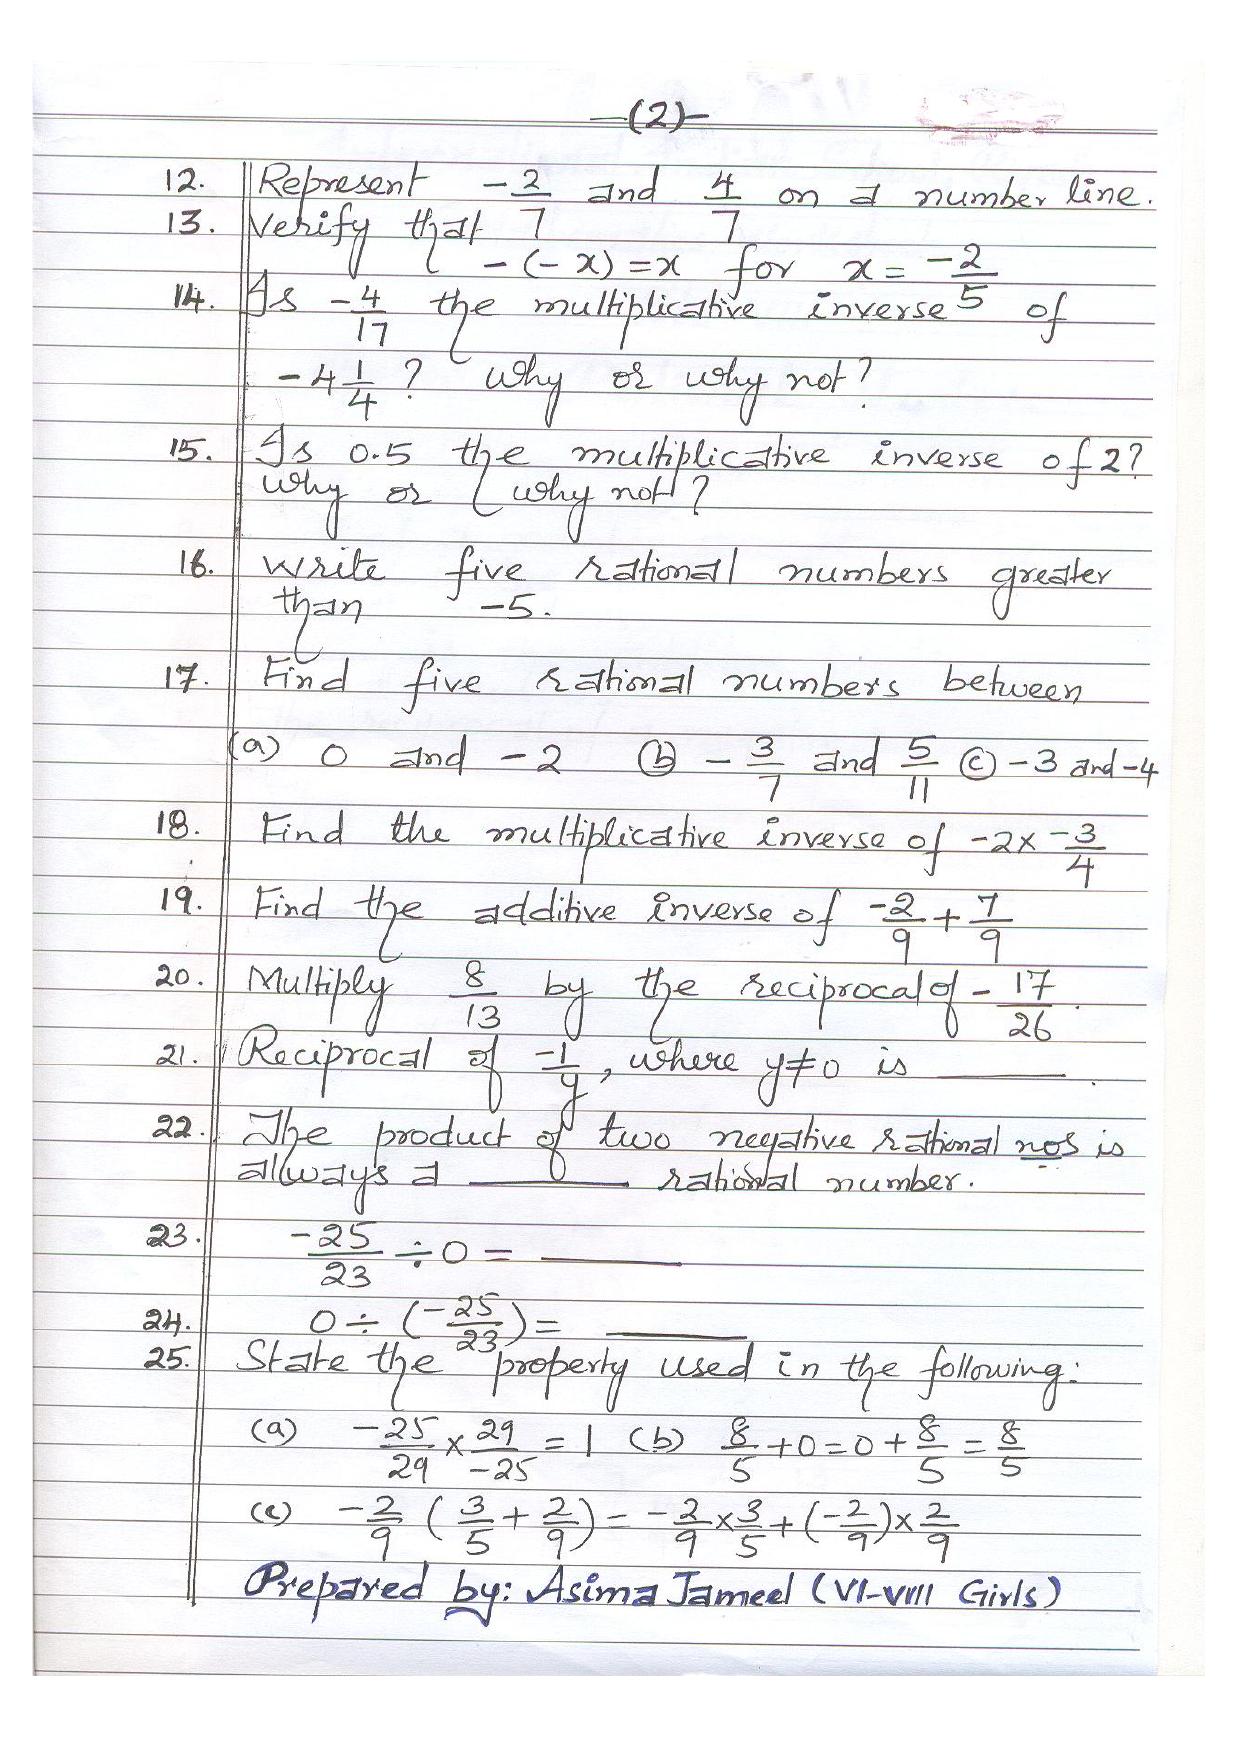 -(2)-
12. Represent -2/7 and 4/7 on a number line.
13. Verify that
-(-x)=x for x= -2/5
14. Is -4/17 the multiplicative inverse of
-4 1/4 ? Why or why not?
15. Is 0.5 the multiplicative inverse of 2?
Why or why not?
16. Write five rational numbers greater
than -5.
17. Find five rational numbers between
(a) 0 and -2 (b) -3/7 and 5/11 (c) -3 and -4
18. Find the multiplicative inverse of -2x -3/4
19. Find the additive inverse of -2/9 + 7/9
20. Multiply 8/13 by the reciprocal of -17/26.
21. Reciprocal of -1/y, where y≠0 is ______.
22. The product of two negative rational nos is
always a ______ rational number.
23. -25/23 ÷ 0 = ______
24. 0 ÷ (-25/23) = ______
25. State the property used in the following:
(a) -25/29 x 29/-25 = 1 (b) 8/5 +0=0+ 8/5 = 8/5
(c) -2/9 (3/5 + 2/9) = -2/9 x 3/5 + (-2/9) x 2/9
Prepared by: Asima Jameel (VI-VIII Girls)